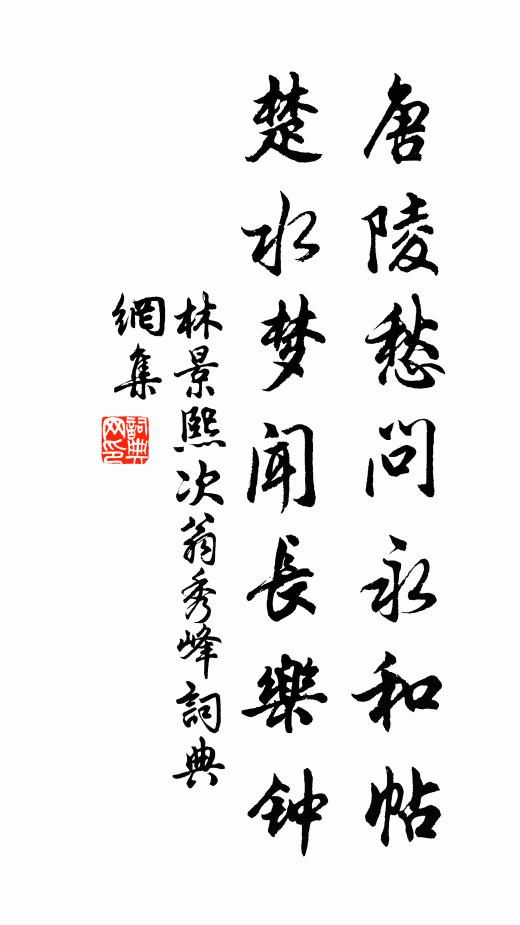 唐陵愁问永和帖
楚水梦闻長樂钟
林景熙次翁秀峰詞典
網集
詞典
网印